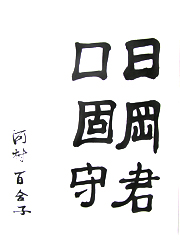 日岡君
口固守
河村百合子